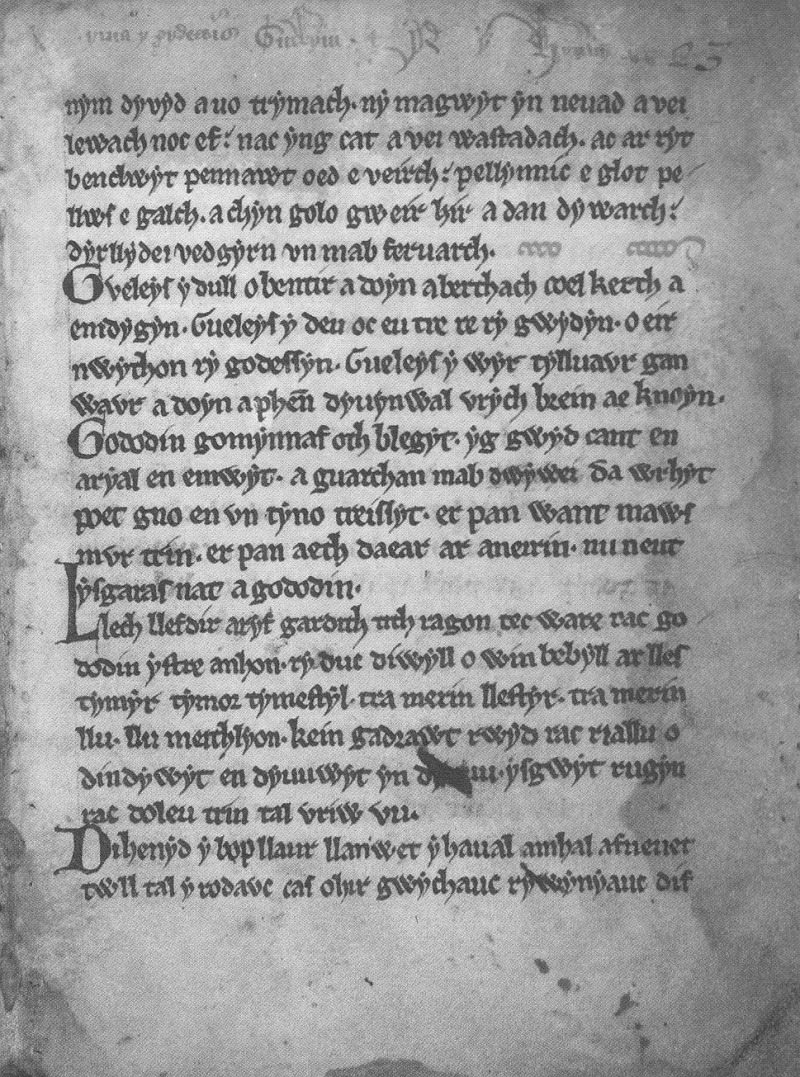 Guilym
nym dyvyd a uo trymach. ny magwyt yn neuad a vei
lewach noc ef. nac yng cat a vei wastadach. ac ar ryt
benclwyt pennawt oed e veirch. pellynnic e glot pe
llws e galch. a chyn golo gweir hir a dan dywarch.
dyrllydei vedgyrn vn mab feruarch.
Gveleys y dull o bentir a doyn aberthach coel kerth a
emdygyn. Gueleys y deu oc eu tre re ry gwydyn. o eir
nwython ry godessyn. Gueleys y wyr tylluavr gan
wavr a doyn a phen̄ dyuynwal vrych brein ae knoyn.
Gododin gomynnaf oth blegyt. yg gwyd cant en
aryal en emwyt. a guarchan mab dwywei da wrhyt
poet gno en vn tyno treissyt. er pan want maws
mvr trin. er pan aeth daear ar aneirin. nu neut
ysgaras nat a gododin.
Llech llefdir aryf gardith tith ragon tec ware rac go
dodin ystre anhon. ry duc diwyll o win bebyll ar lles
tymyr tymor tymestyl. tra merin llestyr. tra merin
llu. llu meithlyon. kein gadrawt rwyd rac riallu o
dindywyt en dyuuwyt yn ysgwyt rugyn
rac doleu trin tal vriw vu.
Dihenyd y bop llaur llanw et y haual amhal afneuet
twll tal y rodavc cas ohir gwychauc rywynyauc dif